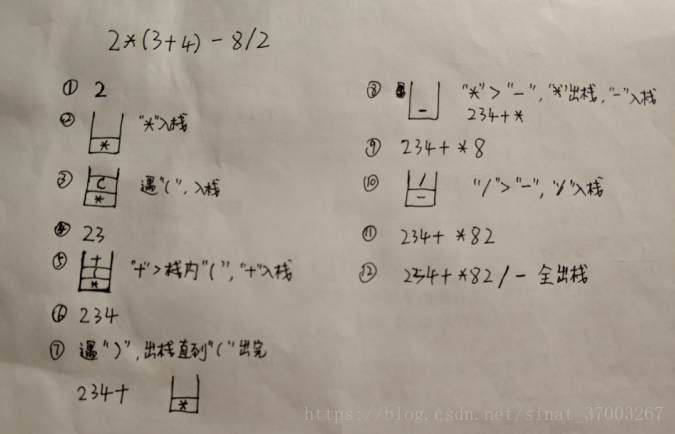 2*(3+4)-8/2
① 2
② * "*"入栈
③ ( * 遇"(",入栈
④ 23
⑤ + ( * "+">栈内"(","+"入栈
⑥ 234
⑦ 遇")",出栈直到"("出完
234+ *
⑧ - "*">"-","*"出栈,"-"入栈
234+*
⑨ 234+*8
⑩ / - "/">"-","/"入栈
⑪ 234+*82
⑫ 234+*82/- 全出栈
https://blog.csdn.net/sinat_37003267